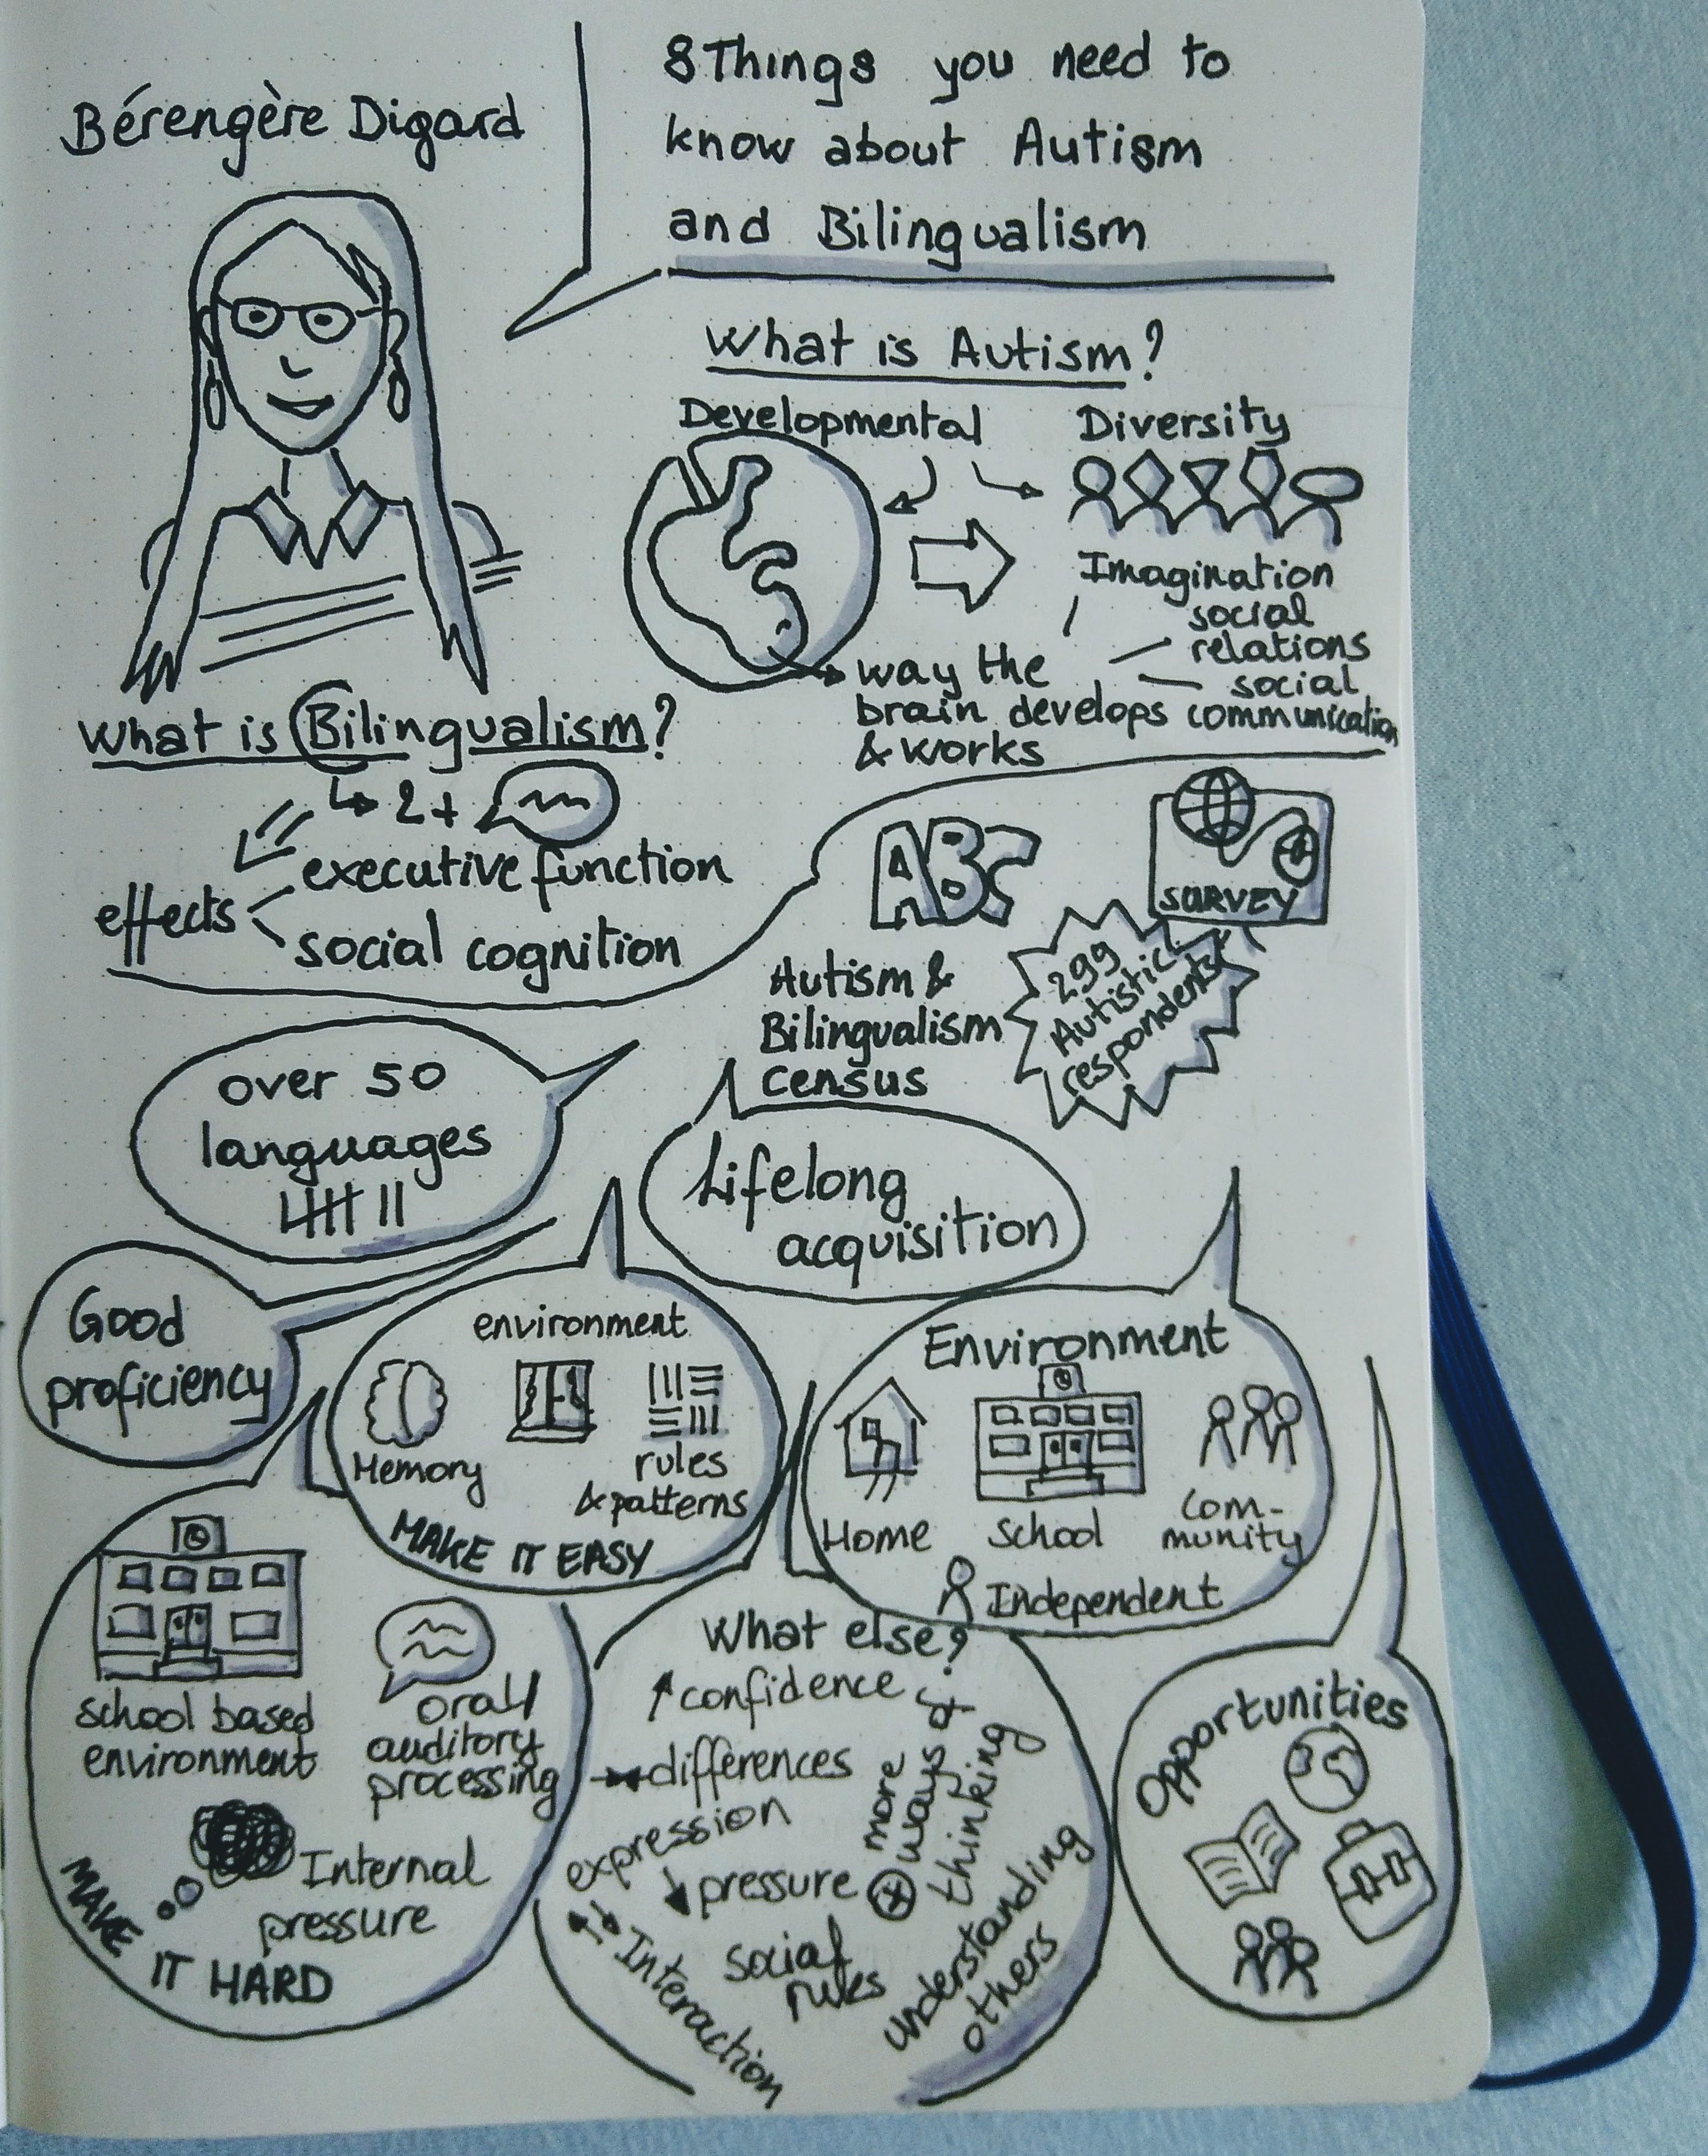 Bérengère Digard
8 Things you need to
know about Autism
and Bilingualism
What is Autism?
Developmental
Diversity
Imagination
social
relations
social
communication
way the
brain develops
& works
What is Bilingualism?
2+
effects
executive function
social cognition
ABC
SURVEY
Autism &
Bilingualism
Census
299
Autistic
respondents
over 50
languages
Lifelong
acquisition
Good
proficiency
environment
Memory
rules
& patterns
MAKE IT EASY
Environment
Home
School
Com-
munity
Independent
school based
environment
oral/
auditory
processing
Internal
pressure
MAKE IT HARD
What else?
confidence
differences
expression
pressure
social
rules
Interaction
more
ways of
thinking
understanding
others
Opportunities